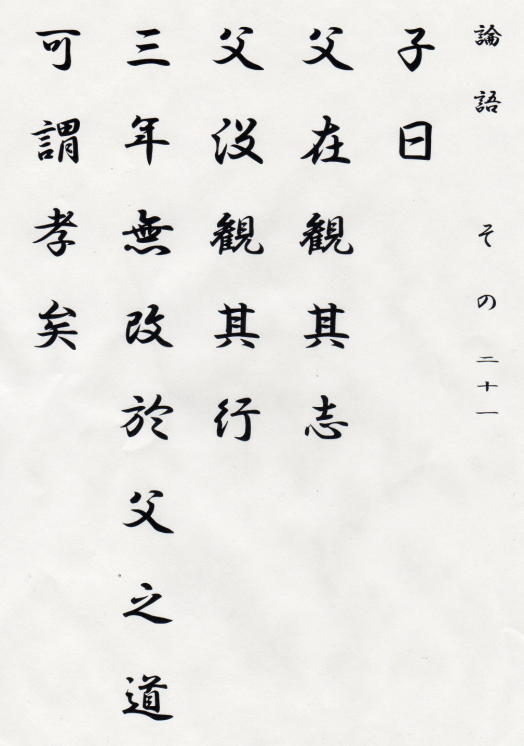 論語 その二十一
子曰
父在観其志
父没観其行
三年無改於父之道
可謂孝矣